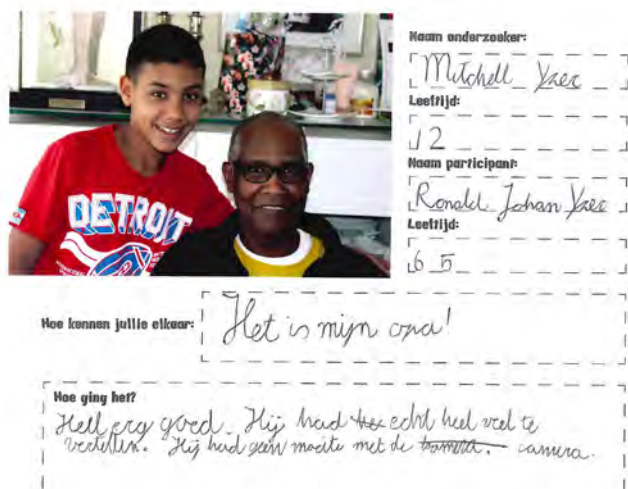 DETROIT
Naam onderzoeker:
Mitchell Yzer
Leeftijd:
12
Naam participant:
Ronald Johan Yzer
Leeftijd:
65
Hoe kennen jullie elkaar:
Het is mijn opa!
Hoe ging het?
Heel erg goed. Hij had echt heel veel te
vertellen. Hij had geen moeite met de camera. camera.